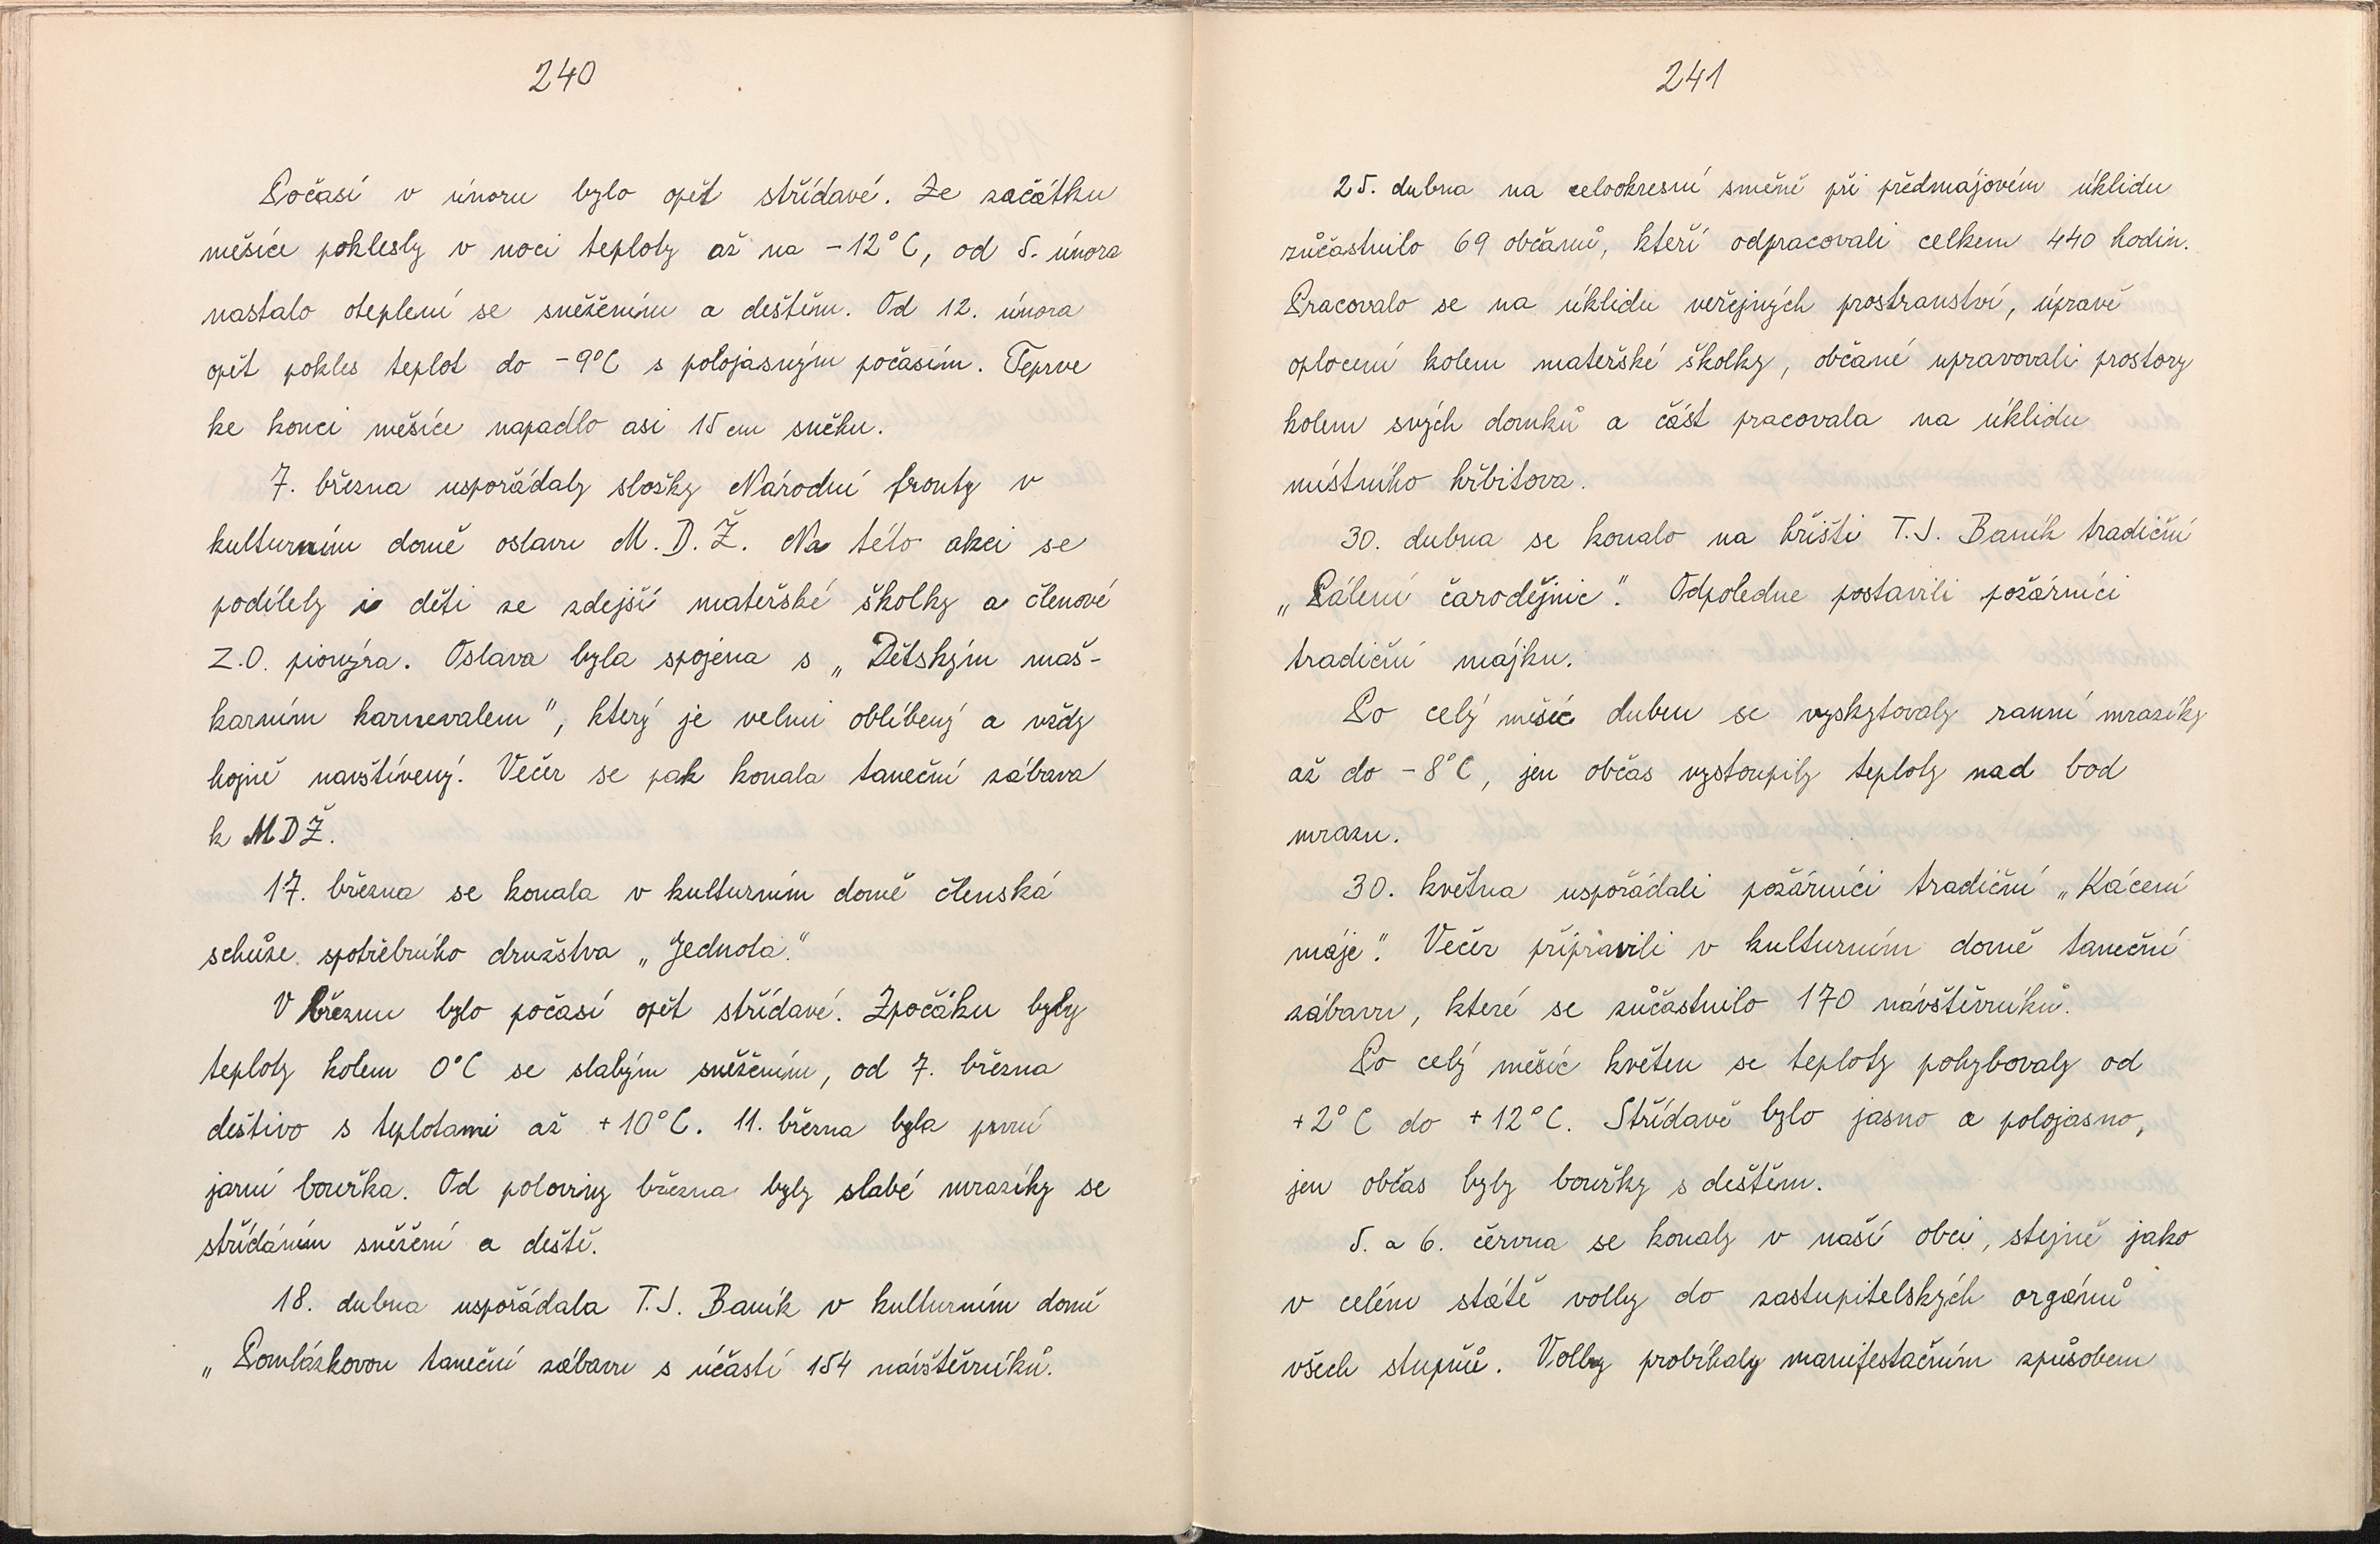 240
Počasí v únoru bylo opět střídavé. Ze začátku
měsíce poklesly v noci teploty až na -12°C, od 5. února
nastalo oteplení se sněžením a deštěm. Od 12. února
opět pokles teplot do -9°C s polojasným počasím. Teprve
ke konci měsíce napadlo asi 15 cm sněhu.
7. března uspořádaly složky Národní fronty v
kulturním domě oslavu M.D.Ž. Na této akci se
podílely i děti ze zdejší mateřské školky a členové
Z.O. pionýra. Oslava byla spojena s „Dětským maš-
karním karnevalem", který je velmi oblíbený a vždy
hojně navštívený. Večer se pak konala taneční zábava
k MDŽ.
17. března se konala v kulturním domě členská
schůze spotřebního družstva „Jednota."
V březnu bylo počasí opět střídavé. Zpočáku byly
teploty kolem 0°C se slabým sněžením, od 7. března
deštivo s teplotami až +10°C. 11. března byla první
jarní bouřka. Od poloviny března byly slabé mrazíky se
střídáním sněžení a deště.
18. dubna uspořádala T.J. Baník v kulturním domě
„Pomlázkovou taneční zábavu s účastí 154 návštěvníků.
241
25. dubna na celookresní směně při předmájovém úklidu
zůčastnilo 69 občanů, kteří odpracovali celkem 440 hodin.
Pracovalo se na úklidu veřejných prostranství, úpravě
oplocení kolem mateřské školky, občané upravovali prostory
kolem svých domků a část pracovala na úklidu
místního hřbitova.
30. dubna se konalo na hřišti T.J. Baník tradiční
„Pálení čarodějnic". Odpoledne postavili požárníci
tradiční májku.
Po celý měsíc duben se vyskytovaly ranní mrazíky
až do -8°C, jen občas vystoupily teploty nad bod
mrazu.
30. května uspořádali požárníci tradiční „Kácení
máje". Večer připravili v kulturním domě taneční
zábavu, které se zůčastnilo 170 návštěvníků.
Po celý měsíc květen se teploty pohybovaly od
+2°C do +12°C. Střídavě bylo jasno a polojasno,
jen občas byly bouřky s deštěm.
5. a 6. června se konaly v naší obci, stejně jako
v celém státě volby do zastupitelských orgánů
všech stupňů. Volby probíhaly manifestačním způsobem